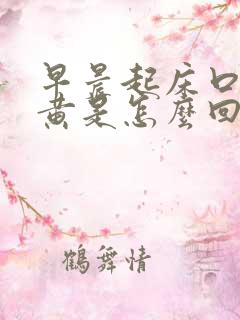 早晨起床口
黄是怎麼回
鶴舞情